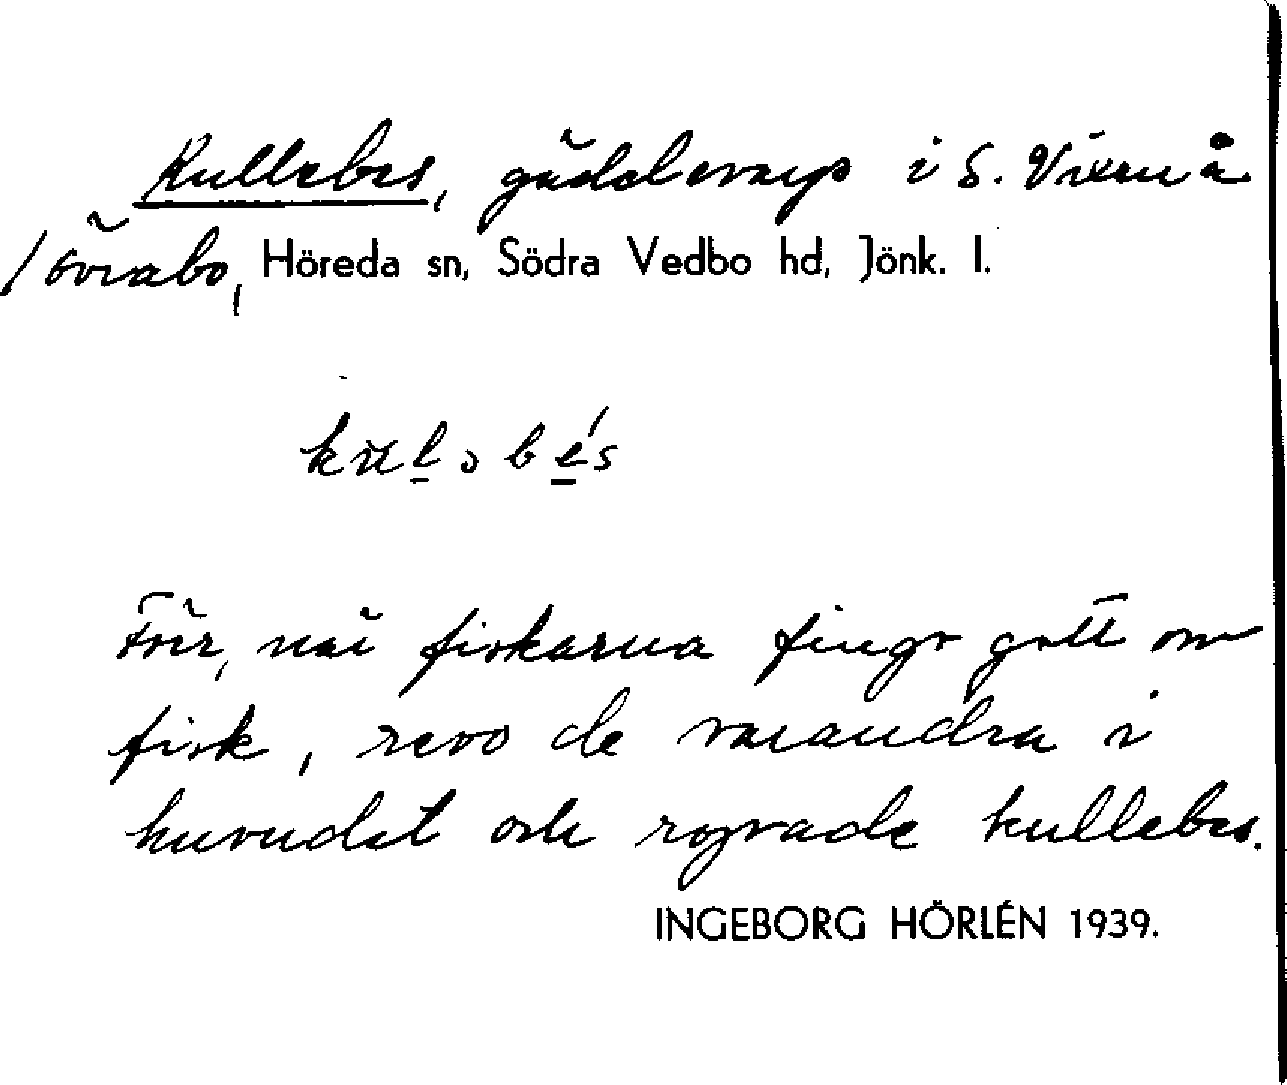 Kullebes, gäddevarp i S. Vixen å
/Övrabo, Höreda sn, Södra Vedbo hd, Jönk. l.
kuləbés
Förr, när fiskarna fingo gott om
fisk, revo de varandra i
huvudet och ropade kullebes.
INGEBORG HÖRLÉN 1939.